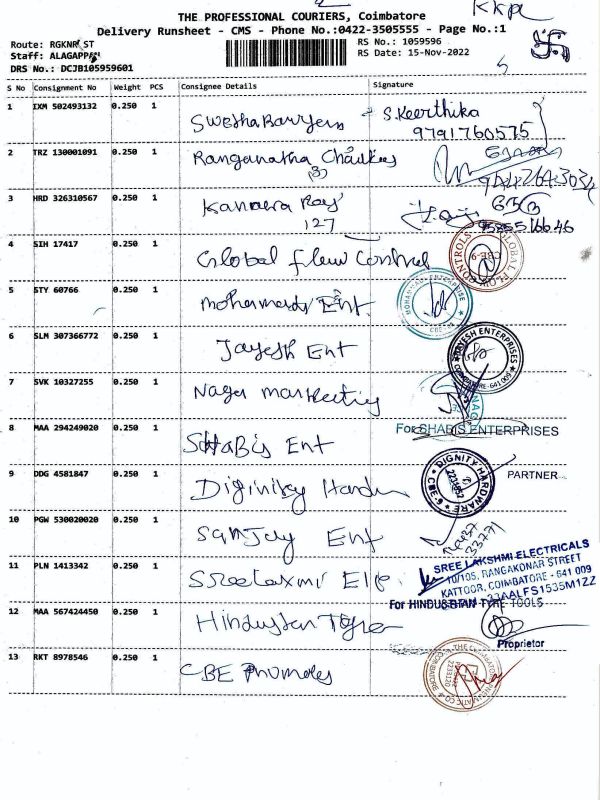 Kkpr
THE PROFESSIONAL COURIERS, Coimbatore
Delivery Runsheet - CMS - Phone No.:0422-3505555 - Page No.:1
Route: RGKNR ST
Staff: ALAGAPPAN
DRS No.: DCJB105959601
RS No.: 1059596
RS Date: 15-Nov-2022
S No Consignment No Weight PCS Consignee Details Signature
1 IXM 502493132 0.250 1 S.Keerthika
9791760575
2 TRZ 130001091 0.250 1 Ranganatha
3 HRD 326310567 0.250 1
127
4 SIH 17417 0.250 1 Global flow control
GLOBAL FLOW CONTROLS CBE-9
5 STY 60766 0.250 1 Ent.
ENTERPRISE
CBE
6 SLM 307366772 0.250 1 Jayesh Ent
JAYESH ENTERPRISES
COIMBATORE-641 009
7 SVK 10327255 0.250 1 Nager marketing
NAG
8 MAA 294249020 0.250 1 SHABIS Ent
For SHABIS ENTERPRISES
PARTNER
9 DDG 4581847 0.250 1
DIGNITY HARDWARE
CBE-9
10 PGW 530020020 0.250 1 Sanjay Ent
11 PLN 1413342 0.250 1 Sreelaxmi Ele
SREE LAKSHMI ELECTRICALS
10/105, RANGAKONAR STREET
KATTOOR, COIMBATORE - 641 009
33AALFS1535M1ZZ
12 MAA 567424450 0.250 1 Hindustan Tyre
For HINDUSTAN TYRE TOOLS
Proprietor
13 RKT 8978546 0.250 1 CBE